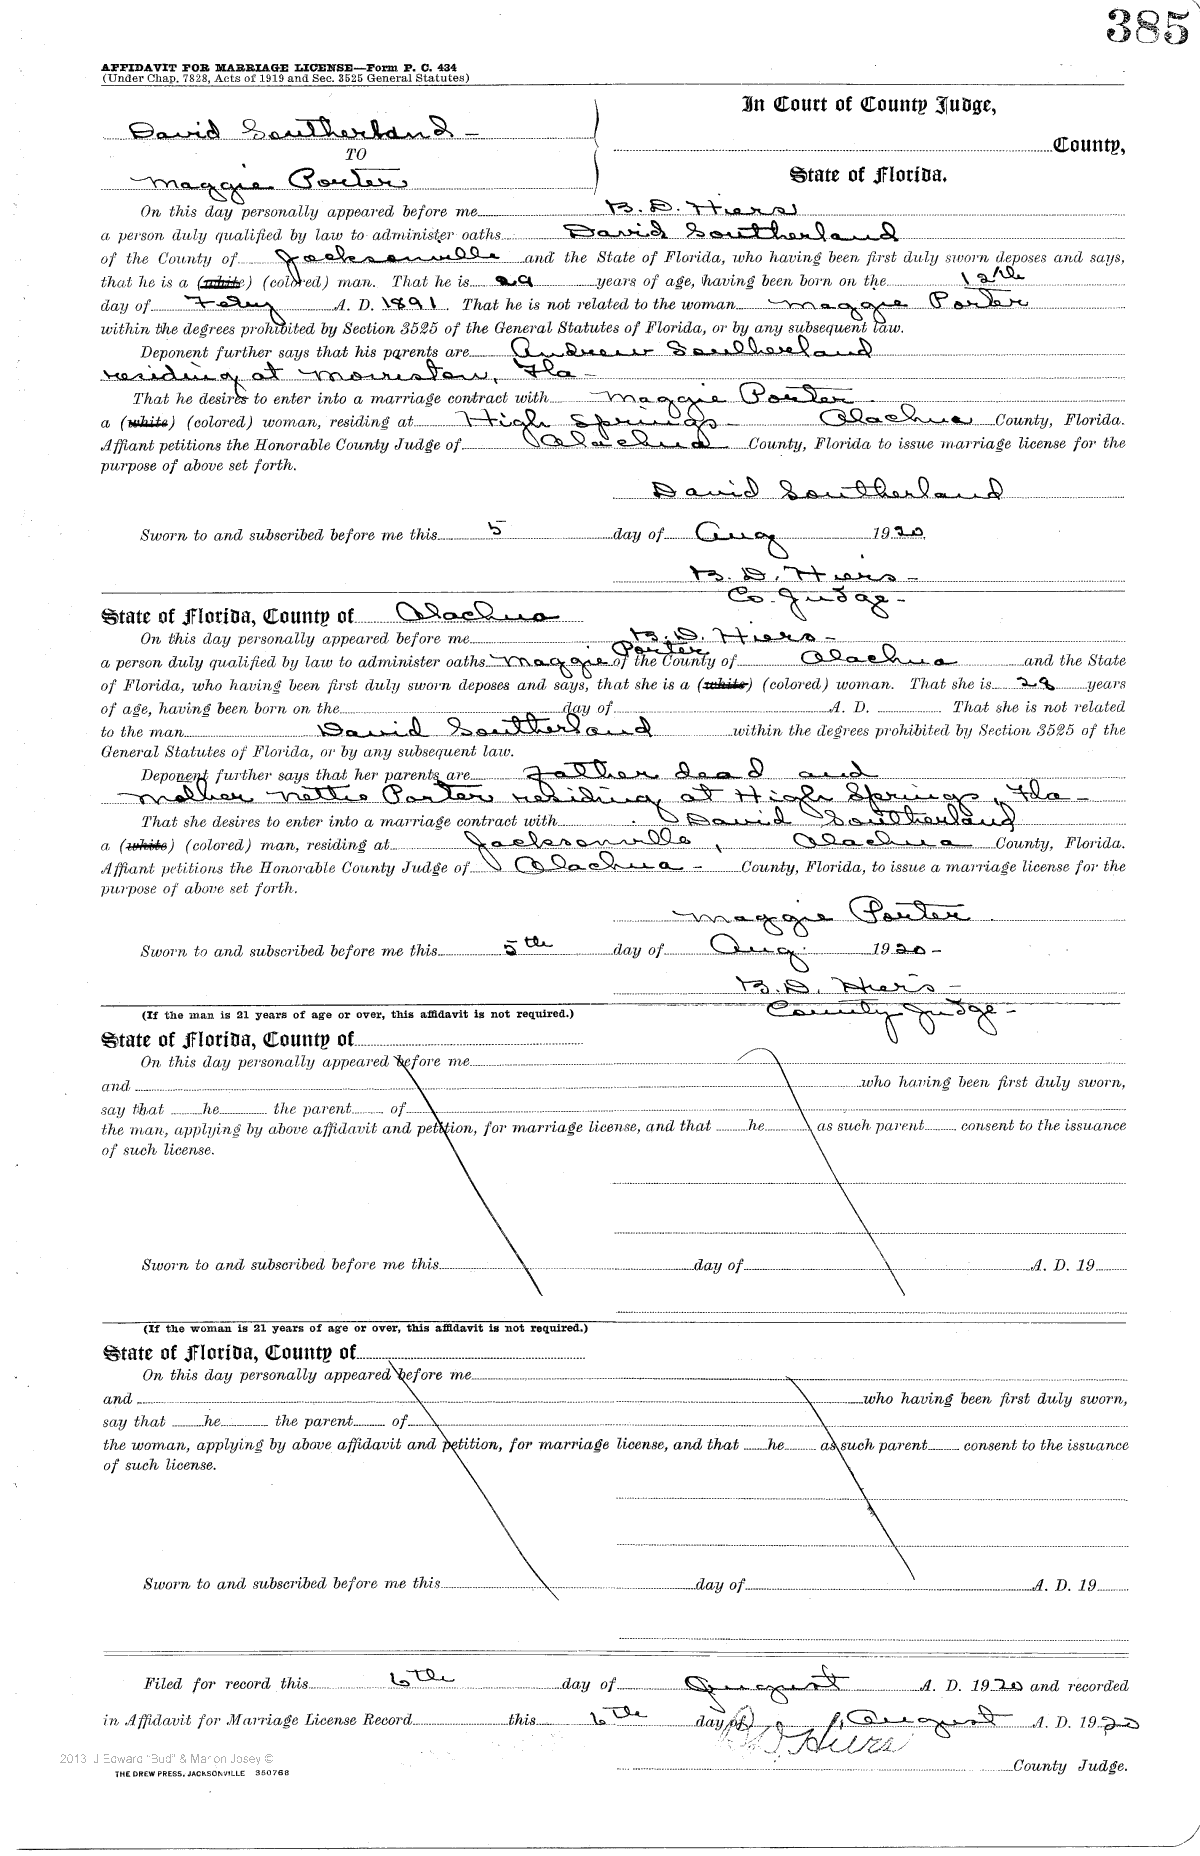 385
AFFIDAVIT FOR MARRIAGE LICENSE—Form P. C. 434
(Under Chap. 7828, Acts of 1919 and Sec. 3525 General Statutes)
David Southerland –
TO
Maggie Porter
In Court of County Judge,
County,
State of Florida.
On this day personally appeared before me B. D. Hiers
a person duly qualified by law to administer oaths David Southerland
of the County of Jacksonville and the State of Florida, who having been first duly sworn deposes and says,
that he is a (white) (colored) man. That he is 29 years of age, having been born on the 12th
day of Feby A. D. 1891. That he is not related to the woman Maggie Porter
within the degrees prohibited by Section 3525 of the General Statutes of Florida, or by any subsequent law.
Deponent further says that his parents are Andrew Southerland
residing at Morriston, Fla –
That he desires to enter into a marriage contract with Maggie Porter
a (white) (colored) woman, residing at High Springs Alachua County, Florida.
Affiant petitions the Honorable County Judge of Alachua County, Florida to issue marriage license for the
purpose of above set forth.
David Southerland
Sworn to and subscribed before me this 5 day of Aug 1920.
B. D. Hiers –
Co. Judge –
State of Florida, County of Alachua
On this day personally appeared before me B. D. Hiers –
a person duly qualified by law to administer oaths Maggie Porter of the County of Alachua and the State
of Florida, who having been first duly sworn deposes and says, that she is a (white) (colored) woman. That she is 28 years
of age, having been born on the day of A. D. That she is not related
to the man David Southerland within the degrees prohibited by Section 3525 of the
General Statutes of Florida, or by any subsequent law.
Deponent further says that her parents are Father dead and
Mother Nettie Porter residing at High Springs, Fla –
That she desires to enter into a marriage contract with David Southerland
a (white) (colored) man, residing at Jacksonville, Alachua County, Florida.
Affiant petitions the Honorable County Judge of Alachua – County, Florida, to issue a marriage license for the
purpose of above set forth.
Maggie Porter
Sworn to and subscribed before me this 5th day of Aug. 1920 –
B. D. Hiers –
County Judge –
(If the man is 21 years of age or over, this affidavit is not required.)
State of Florida, County of
On this day personally appeared before me
and who having been first duly sworn,
say that he the parent of
the man, applying by above affidavit and petition, for marriage license, and that he as such parent consent to the issuance
of such license.
Sworn to and subscribed before me this day of A. D. 19
(If the woman is 21 years of age or over, this affidavit is not required.)
State of Florida, County of
On this day personally appeared before me
and who having been first duly sworn,
say that he the parent of
the woman, applying by above affidavit and petition, for marriage license, and that he as such parent consent to the issuance
of such license.
Sworn to and subscribed before me this day of A. D. 19
Filed for record this 6th day of August A. D. 1920 and recorded
in Affidavit for Marriage License Record this 6th day of August A. D. 1920
B D Hiers
County Judge.
2013 J Edward "Bud" & Marion Josey ©
THE DREW PRESS, JACKSONVILLE 350768